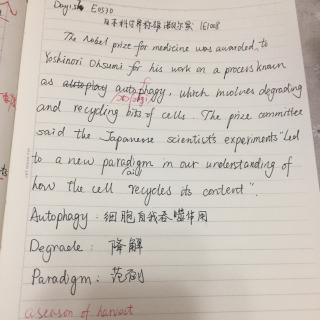 Day156 E0530
日本科学界称雄诺贝尔奖 161008
The Nobel prize for medicine was awarded to
Yoshinori Ohsumi for his work on a process known
as autophagy, which involves degrading
and recycling bits of cells. The prize committee
said the Japanese scientist's experiments "led
to a new paradigm in our understanding of
how the cell recycles its content".
Autophagy: 细胞自我吞噬作用
Degrade: 降解
Paradigm: 范例
a season of harvest